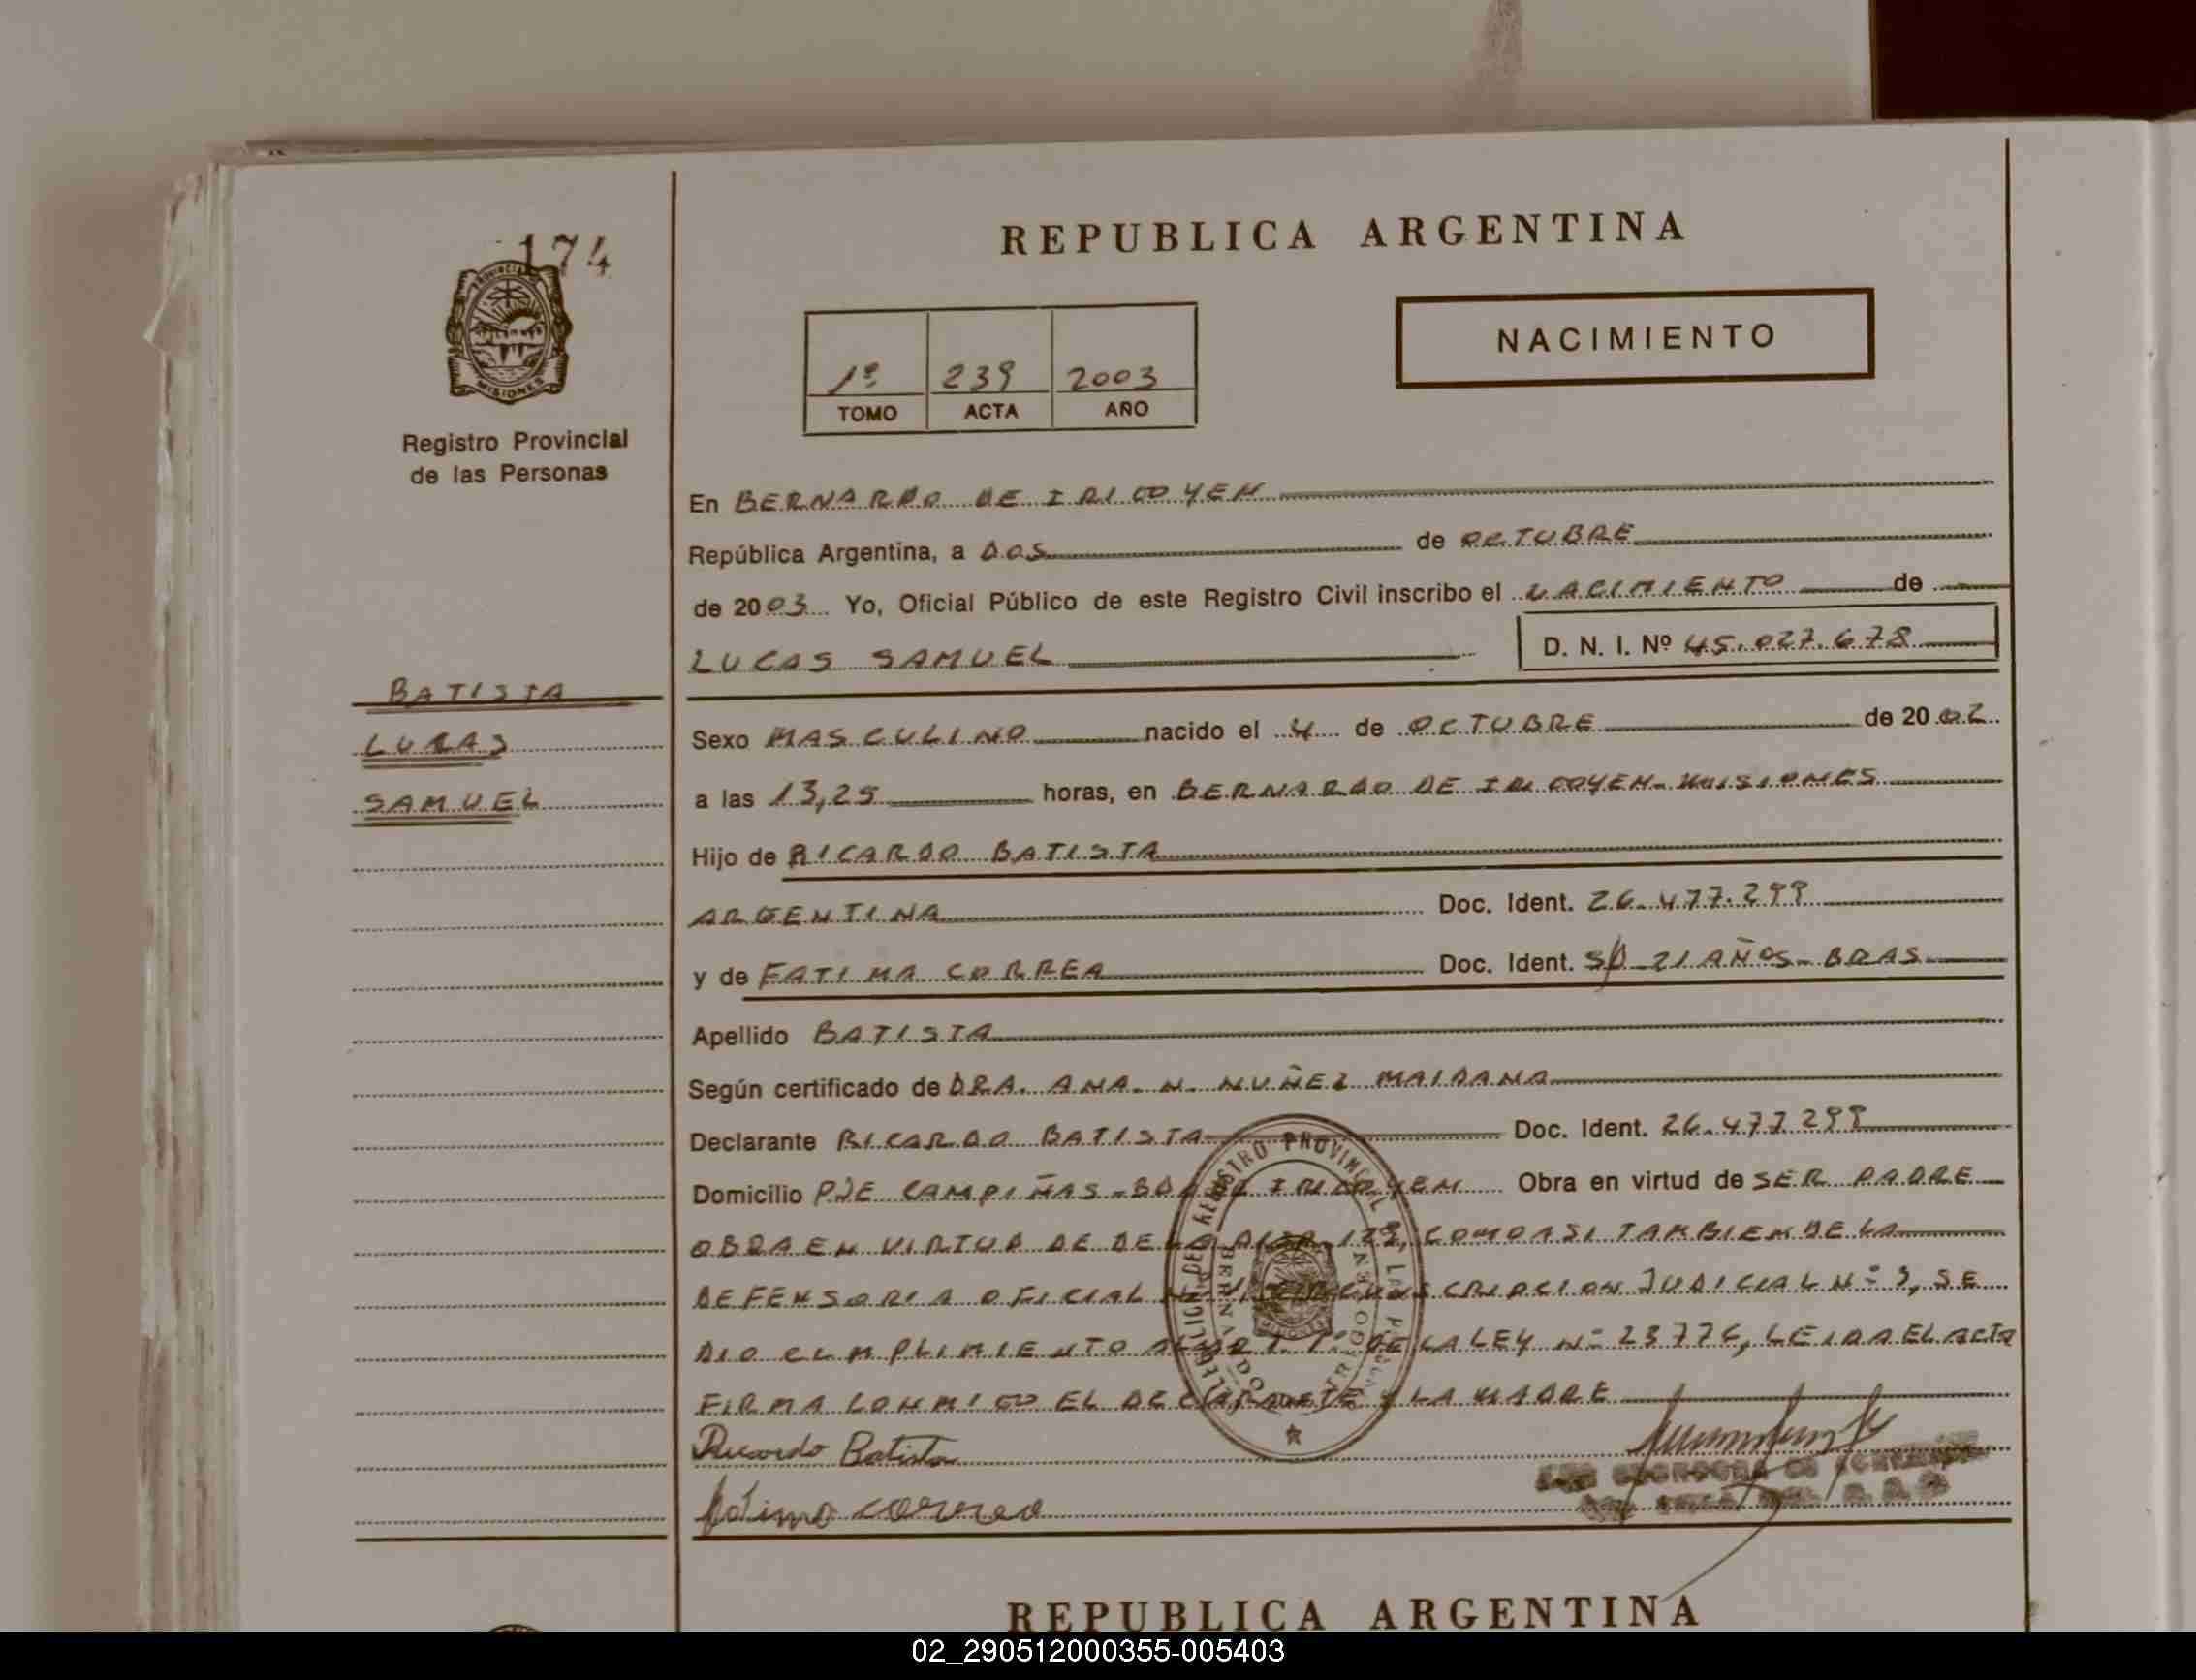 174
PROVINCIA
MISIONES
Registro Provincial
de las Personas
REPUBLICA ARGENTINA
1º 239 2003
TOMO ACTA AÑO
NACIMIENTO
En BERNARDO DE IRIGOYEN
República Argentina, a DOS de OCTUBRE
de 2003 Yo, Oficial Público de este Registro Civil inscribo el NACIMIENTO de
LUCAS SAMUEL D. N. I. Nº 45.027.678
BATISTA
LUCAS
SAMUEL
Sexo MASCULINO nacido el 4 de OCTUBRE de 2002
a las 13,25 horas, en BERNARDO DE IRIGOYEN-MISIONES
Hijo de RICARDO BATISTA
ARGENTINA Doc. Ident. 26.477.299
y de FATIMA CORREA Doc. Ident. S/D-21 AÑOS-BRAS
Apellido BATISTA
Según certificado de DRA. ANA. N. NUÑEZ MAIDANA
Declarante RICARDO BATISTA Doc. Ident. 26.477.299
Domicilio PJE CAMPIÑAS-BDO DE IRIGOYEN Obra en virtud de SER PADRE
OBRA EN VIRTUD DE DE LA DISP. 179, COMO ASI TAMBIEN DE LA
DEFENSORIA OFICIAL CIRCUNSCRIPCION JUDICIAL Nº 3, SE
DIO CUMPLIMIENTO 1º DE LA LEY Nº 23776, LEIDA EL ACTA
FIRMA CONMIGO EL DECLARANTE Y LA MADRE
Ricardo Batista
Fátima Correa
REGISTRO PROVINCIAL DE LAS
REPUBLICA ARGENTINA
02_290512000355-005403